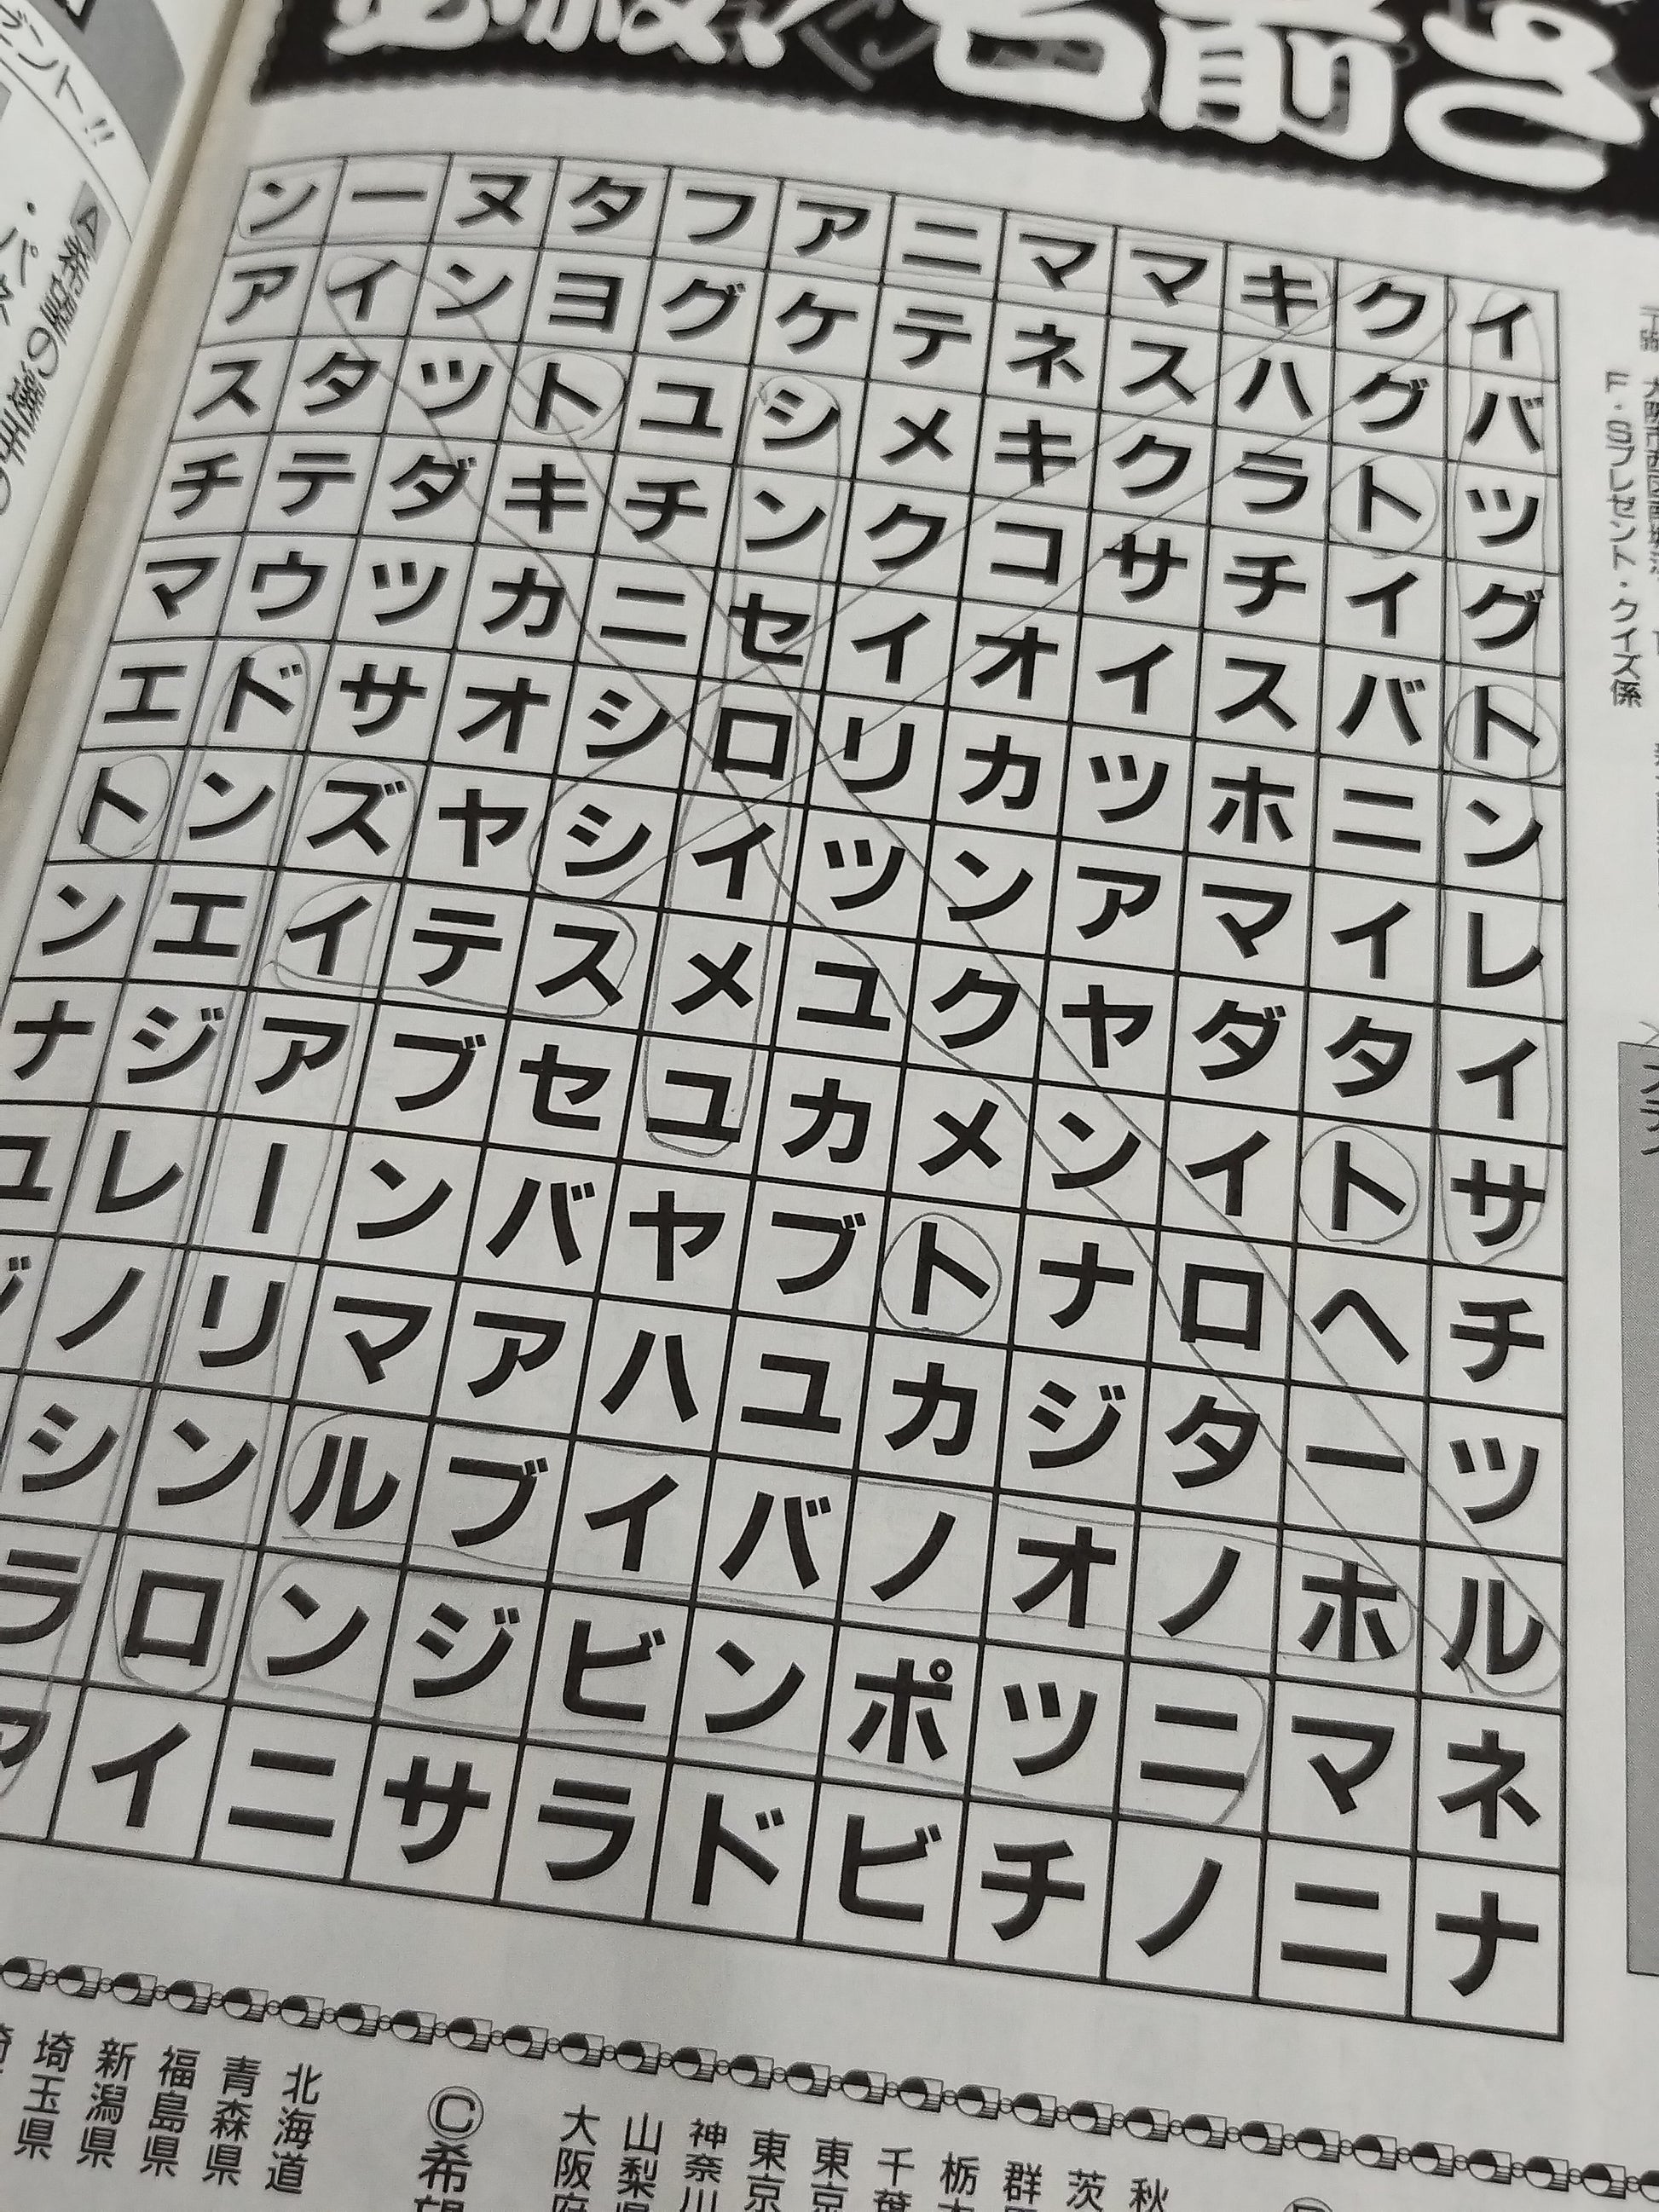 名前さ
ント!!
ンーヌタフアニママキクイ
アインヨグケテネスハグバ
スタツトユシメキクラトツ
チテダキチンクコサチイグ
マウツカニセイオイスバト
エドサオシロリカツホニン
トンズヤシイツンアマイレ
ンエイテスメユクヤダタイ
ナジアブセユカメンイトサ
ユレーンバヤブトナロヘチ
ノリマアハユカジターツ
シンルブイバノオノホル
ラロンジビンポツニマネ
イニサラドビチノニナ
F・Sプレゼント・クイズ係
秋
茨
群
栃
千葉
東京
東京
神奈川
山梨
大阪府
Ⓒ希望
北海道
青森県
福島県
新潟県
埼玉県